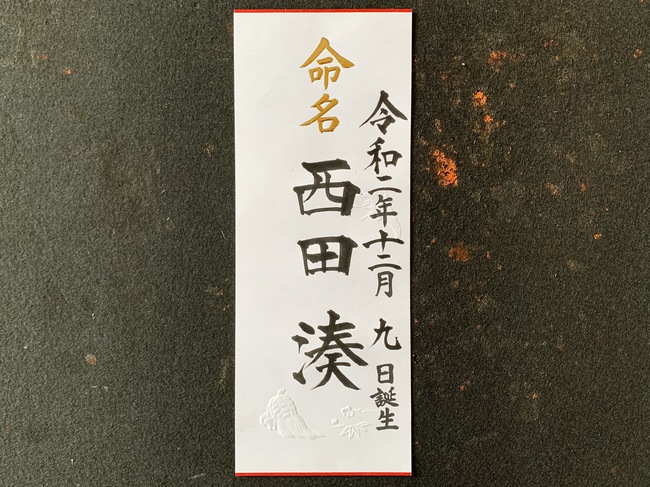 令和二年十二月九日誕生
命名
西田湊